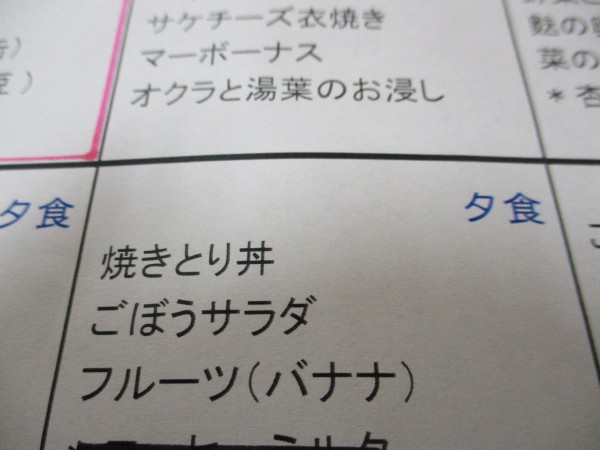 サケチーズ衣焼き
マーボーナス
オクラと湯葉のお浸し
麩の
菜の
* 杏
夕食
夕食
焼きとり丼
ごぼうサラダ
フルーツ(バナナ)